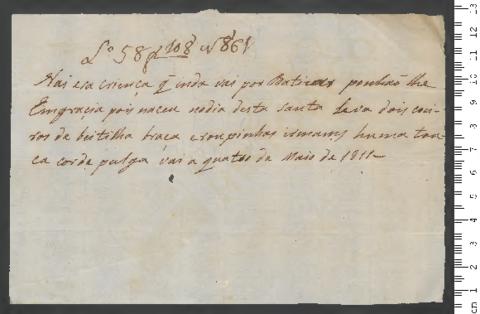 Lº 58 f 108 nº 861
Hai esa criença q̃ inda vai por Batizar ponhaõ lhe
Emgracia pois naceu nodia desta santa Leva dois coei-
ros de beitilha traca e roupinhas irmans huma tou-
ca cor de pulga vai a quatro de Maio de 1811